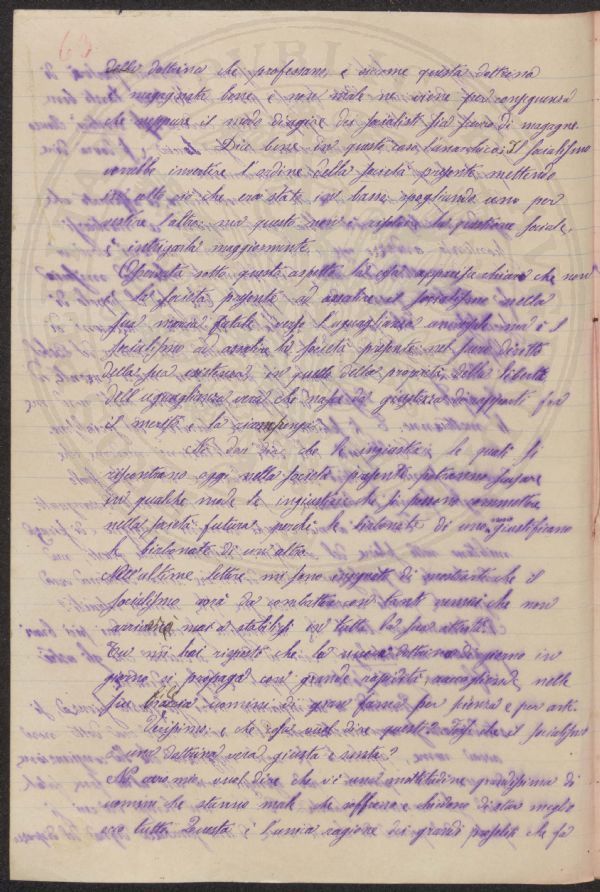 63
della dottrina che professano, e siccome questa dottrina
magagnata bene e non vale ne viene per conseguenza
che neppure il modo d'agire dei socialisti sia scevro di magagne.
Dice bene in questo caso l'anarchico: Il Socialismo
vorrebbe invertire l'ordine della società presente mettendo
in alto ciò che era stato in basso, spogliando uno per
vestire l'altro; ma questo non è risolvere la questione sociale,
è intrigarla maggiormente.
sotto questo aspetto la cosa, apparisce chiaro che non
è la società presente ad assalire il socialismo nella
sua marcia fatale verso l'uguaglianza universale ma è il
socialismo ad assalire la società presente nel suo diritto
della sua esistenza, in quello della proprietà, della libertà
dell'uguaglianza vera che nasce da giustezza di rapporti fra
il merito e la ricompensa.
Nè dar che le ingiustizie le quali si
riscontrano oggi nella società presente potranno scusare
in qualche modo le ingiustizie che si possono commettere
nella società futura, perchè le birbonate di uno non giustificano
le birbonate di un altro.
Nell'ultime lettere mi sono ingegnato di mostrarti che il
socialismo avrà da combattere con tanti nemici che non
arriverà mai a stabilirsi in tutta la sua
Tu mi hai risposto che la nuova dottrina di giorno in
giorno si propaga con grande rapidità raccogliendo nelle
sue braccia uomini di gran fama per scienza e per
e che cosa vuol dire questo? Forse che il socialismo
è una dottrina vera giusta e santa?
No caro mio, vuol dire che vi è una moltitudine grandissima di
uomini che stanno male, che soffrono e chiedono di star meglio
ecco tutto. Questa è l'unica ragione dei grandi proseliti che fa